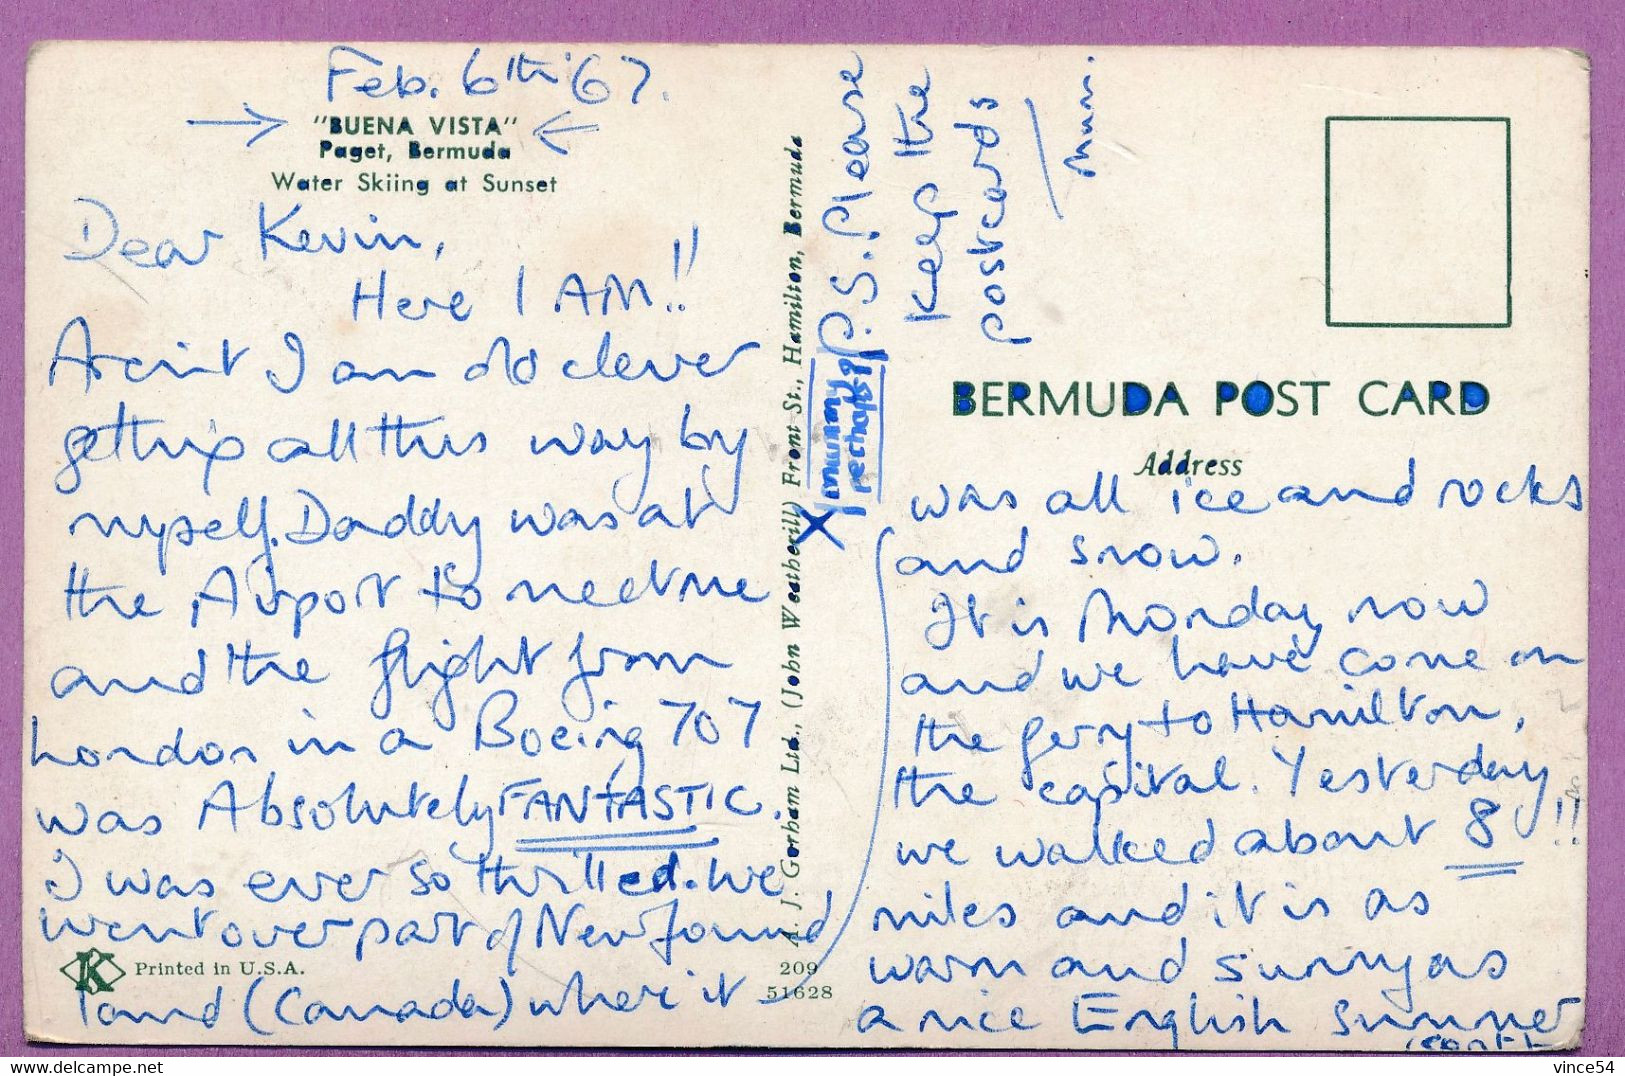 Feb. 6th '67.
"BUENA VISTA"
Paget, Bermuda
Water Skiing at Sunset
Dear Kevin,
Here I AM!!
Arent I am old clever
getting all this way by
myself. Daddy was at
the Airport to meet me
and the flight from
London in a Boeing 707
was Absolutely FANTASTIC.
I was ever so thrilled. We
went over part of Newfound
land (Canada) where it
K Printed in U.S.A.
A. J. Gorham Ltd., (John Weatherill) Front St., Hamilton, Bermuda
209
51628
P.S. Please
Keep the
postcards
Mum.
X
BERMUDA POST CARD
Address
was all ice and rocks
and snow.
It is Monday now
and we have come on
the ferry to Hamilton,
the capital. Yesterday
we walked about 8!!
miles and it is as
warm and sunny as
a nice English summer
(cont
vince54